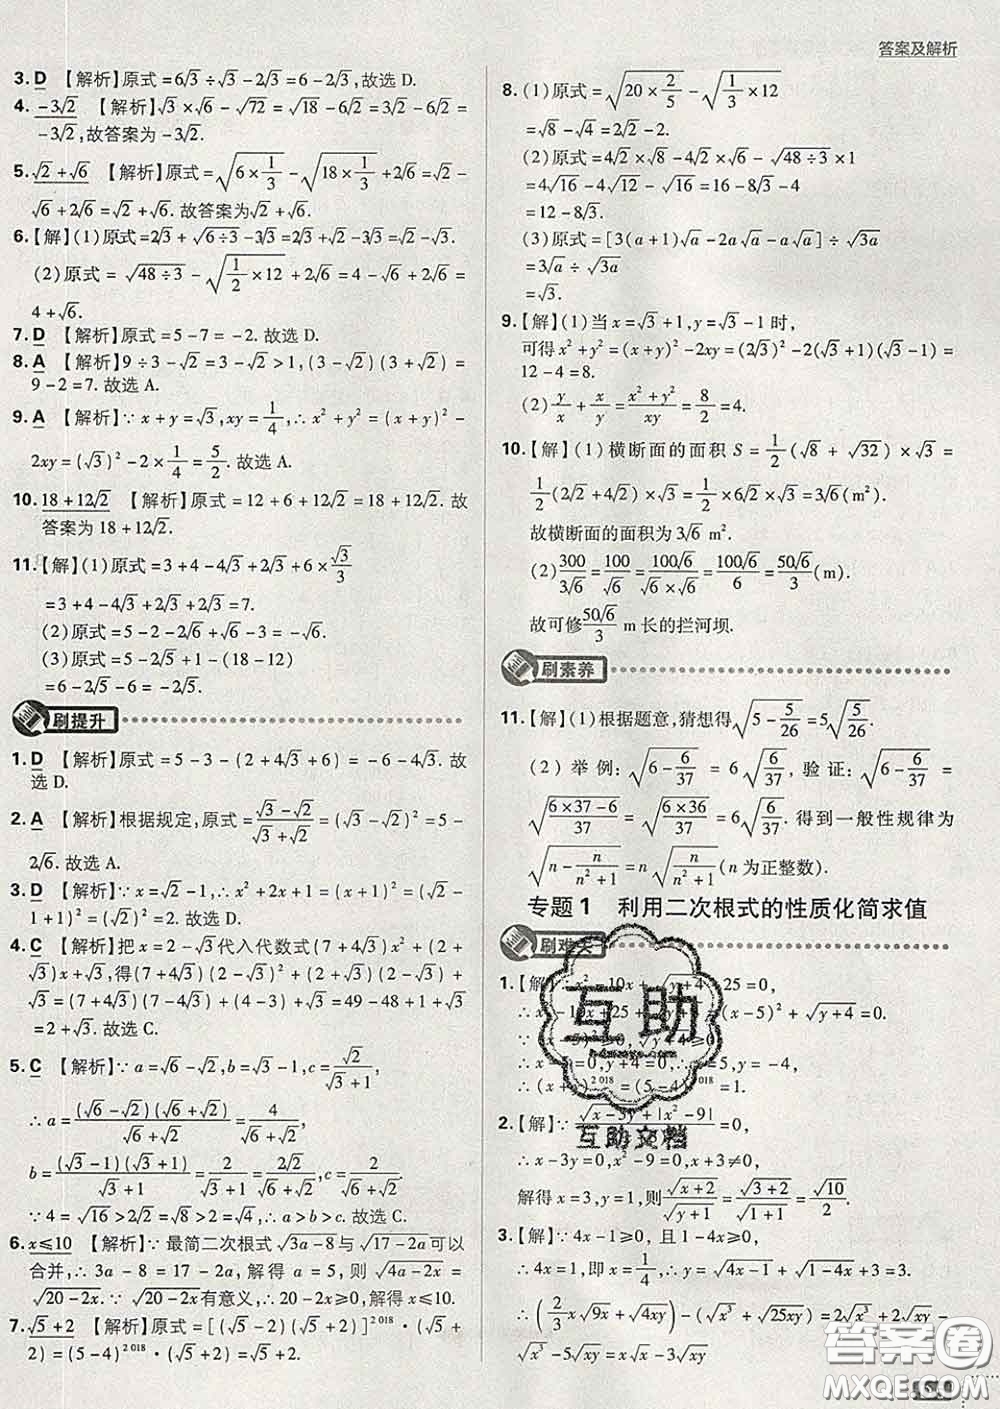 答案及解析
3. D 【解析】原式=6√3÷√3-2√3=6-2√3,故选 D.
4. -3√2 【解析】√3×√6-√72=√18-6√2=3√2-6√2=
-3√2,故答案为-3√2.
5. √2+√6 【解析】原式=√(6×1/3)-√(18×1/3)+2√6=√2-
√6+2√6=√2+√6.故答案为√2+√6.
6.【解】(1)原式=2√3+√(6÷3)-3√3=2√3+√2-3√3=√2-√3.
(2)原式=√(48÷3)-√(1/2×12)+2√6=4-√6+2√6=
4+√6.
7. D 【解析】原式=5-7=-2.故选 D.
8. A 【解析】9÷3-√2=3-√2>1,(3-√2)(3+√2)=
9-2=7.故选 A.
9. A 【解析】∵x+y=√3,xy=1/4,∴x²+y²=(x+y)²-
2xy=(√3)²-2×1/4=5/2.故选 A.
10. 18+12√2 【解析】原式=12+6+12√2=18+12√2.故
答案为 18+12√2.
11.【解】(1)原式=3+4-4√3+2√3+6×√3/3
=3+4-4√3+2√3+2√3=7.
(2)原式=5-2-2√6+√6=3-√6.
(3)原式=5-2√5+1-(18-12)
=6-2√5-6=-2√5.
刷提升
1. D 【解析】原式=5-3-(2+4√3+6)=-6-4√3.故
选 D.
2. A 【解析】根据规定,原式=(√3-√2)/(√3+√2)=(√3-√2)²=5-
2√6.故选 A.
3. D 【解析】∵x=√2-1,∴x²+2x+1=(x+1)²=(√2-
1+1)²=2.故选 D.
4. C 【解析】把x=2-√3代入代数式(7+4√3)x²+(2+
√3)x+√3,得(7+4√3)(2-√3)²+(2+√3)(2-√3)+
√3=(7+4√3)(7-4√3)+(4-3)+√3=49-48+1+√3
=2+√3.故选 C.
5. C 【解析】∵a=√6-√2,b=√3-1,c=√2/(√3+1),
∴a=(√6-√2)(√6+√2)/(√6+√2)=4/(√6+√2),
b=(√3-1)(√3+1)/(√3+1)=2/(√3+1)=2√2/(√6+√2),c=2/(√6+√2).
∵4=√16>2√2=√8>2=√4,∴a>b>c.故选 C.
6. x≤10 【解析】∵最简二次根式√(3a-8)与√(17-2a)可以
合并,∴3a-8=17-2a,解得a=5,则√(4a-2x)=
√(20-2x).∵√(20-2x)有意义,∴20-2x≥0,解得x≤10.
7. √5+2 【解析】原式=[(√5-2)(√5+2)]²⁰¹⁸·(√5+
2)=(5-4)²⁰¹⁸×(√5+2)=√5+2.
8.(1)原式=√(20×2/5)-√(1/3×12)
=√8-√4=2√2-2.
(2)原式=4√2×√8-4√2×√6-√(48÷3)×1
=4√16-4√16-√16=16-8√3-4
=12-8√3.
(3)原式=[3(a+1)√a-2a√a-a√a]÷√(3a)
=3√a÷√(3a)
=√3.
9.【解】(1)当x=√3+1,y=√3-1时,
可得x²+y²=(x+y)²-2xy=(2√3)²-2(√3+1)(√3-1)=
12-4=8.
(2)y/x+x/y=(x²+y²)/xy=8/2=4.
10.【解】(1)横断面的面积S=1/2(√8+√32)×√3=
1/2(2√2+4√2)×√3=1/2×6√2×√3=3√6(m²).
故横断面的面积为3√6 m².
(2)300/(3√6)=100/√6=100√6/(√6×√6)=100√6/6=50√6/3(m).
故可修50√6/3 m长的拦河坝.
刷素养
11.【解】(1)根据题意,猜想得√(5-5/26)=5√(5/26).
(2)举例:√(6-6/37)=6√(6/37),验证:√(6-6/37)=
√((6×37-6)/37)=√((6×36)/37)=6√(6/37).得到一般性规律为
√(n-n/(n²+1))=n√(n/(n²+1))(n为正整数).
专题1 利用二次根式的性质化简求值
刷难关
1.【解】∵x²-10x+√(y+4)+25=0,
∴x²-10x+25+√(y+4)=0,即(x-5)²+√(y+4)=0.
∵(x-5)²≥0,√(y+4)≥0,
∴x-5=0,y+4=0,
∴(x+y)²⁰¹⁸=(5-4)²⁰¹⁸=1.
2.【解】∵√(x-3y)+|x²-9|=0,
∴x-3y=0,x²-9=0,x+3≠0,
解得x=3,y=1,则√(x+2)/√(y+1)=√(3+2)/√(1+1)=√10/2.
3.【解】∵4x-1≥0,且1-4x≥0,
∴4x=1,即x=1/4,∴y=√(4x-1)+√(1-4x)+3=3,
∴(2/3x√(9x)+√(4xy))-(√x³+√(25xy))=2x√x+2√(xy)-
√x³-5√(xy)=x√x-3√(xy)=
互助
互助文档
答案圈
MXQE.COM